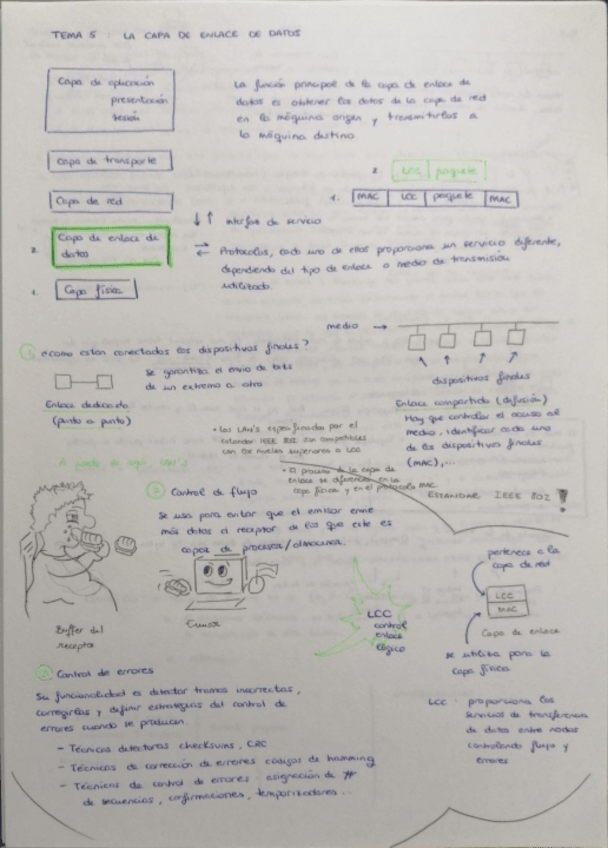 TEMA 5 : LA CAPA DE ENLACE DE DATOS
Capa de aplicación
presentación
sesión
Capa de transporte
Capa de red
2. Capa de enlace de
datos
1. Capa física
La función principal de la capa de enlace de
datos es obtener los datos de la capa de red
en la máquina origen y transmitirlos a
la máquina destino
2. LCC paquete
1. MAC LCC paquete MAC
↓↑ interfaz de servicio
Protocolos, cada uno de ellos proporciona un servicio diferente,
dependiendo del tipo de enlace o medio de transmisión
utilizado.
1 ¿Como estan conectados los dispositivos finales?
Se garantiza el envio de bits
de un extremo a otro
Enlace dedicado
(punto a punto)
medio →
dispositivos finales
Enlace compartido (difusión)
Hay que controlar el acceso al
medio, identificar cada uno
de los dispositivos finales
(MAC),...
• Las LAN's especificadas por el
estandar IEEE 802 son compatibles
con los niveles superiores a LCC
• El proceso de la capa de
enlace se diferencia en la
capa física y en el protocolo MAC
ESTANDAR IEEE 802 !
A partir de aquí, LAN's
2 Control de flujo
Se usa para evitar que el emisor envie
más datos al receptor de los que este es
capaz de procesar/almacenar.
Buffer del
receptor
Emisor
LCC
control
enlace
lógico
pertenece a la
capa de red
LCC
MAC
Capa de enlace
se utiliza para la
capa física
3 Control de errores
Su funcionalidad es detectar tramas incorrectas,
corregirlas y definir estrategias del control de
errores cuando se producen.
- Técnicas detectoras checksums, CRC
- Técnicas de corrección de errores códigos de hamming
- Técnicas de control de errores asignación de nº
de secuencias, confirmaciones, temporizadores...
LCC · proporciona los
servicios de transferencia
de datos entre nodos
controlando flujo y
errores